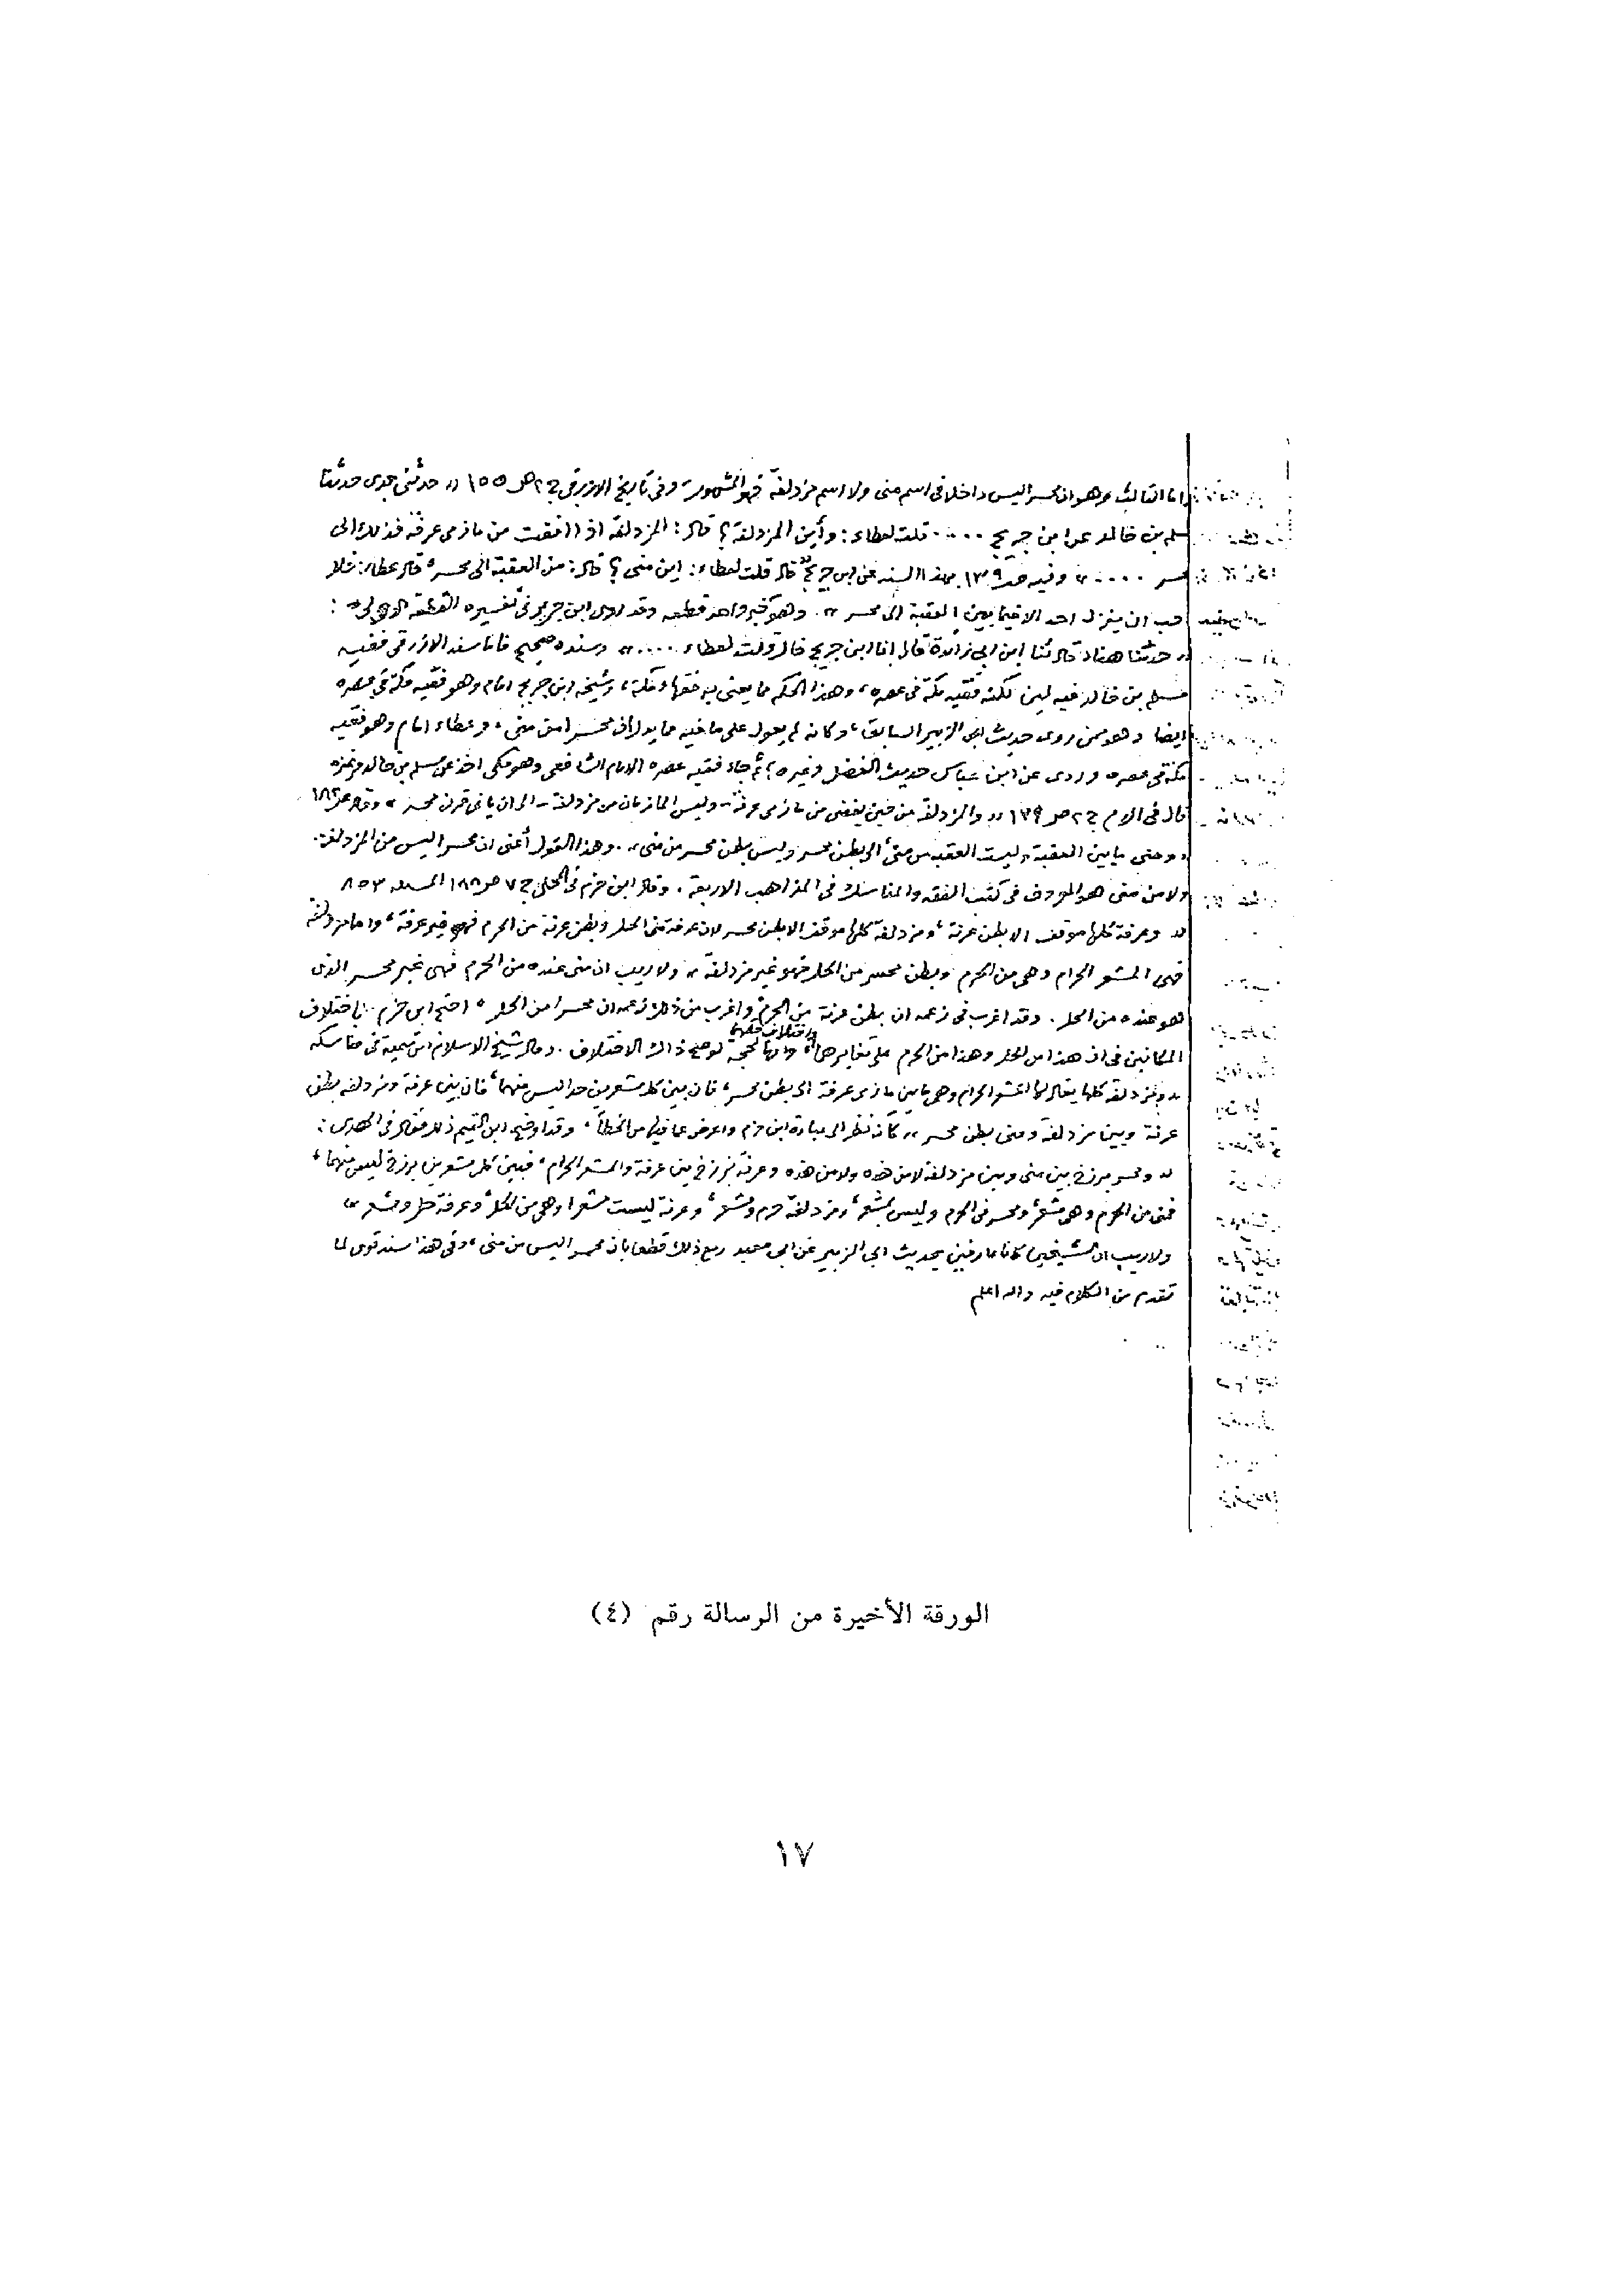 اما الثالث وهو ان محسرا ليس داخلا فى اسم منى ولا اسم مزدلفة فهو المشهور، وفى تاريخ الازرقى ج ٢ ص ١٥٥ « حدثنى جدى حدثنا
مسلم بن خالد عن ابن جريج ..... قلت لعطاء: وأين المزدلفة؟ قال: المزدلفة اذا افضت من مازمى عرفة فذلك الى
محسر .....» وفيه ص ١٣٩ بهذا السند عن ابن جريج قال قلت لعطاء: اين منى؟ قال: من العقبة الى محسر، قال عطاء: فلا
احب ان ينزل احد الا فيما بين العقبة الى محسر ». وهو خبر واحد قطعه وقد روى ابن جرير فى تفسيره القطعة الاولى:
« حدثنا هناد قال ثنا ابن ابى زائدة قال انا ابن جريج قال قلت لعطاء .....» وسنده صحيح فاما سند الازرقى ففيه
مسلم بن خالد فيه لين لكنه فقيه مكة فى عصره، وهذا الحكم مما يعنى به فقهاء مكة، وشيخه ابن جريج امام وهو فقيه مكة فى عصره
ايضا وهو ممن روى حديث ابى الزبير السابق، وكانه لم يعول على ما فيه مما يدل ان محسرا من منى، وعطاء امام وهو فقيه
مكة فى عصره وروى عن ابن عباس حديث الفضل وغيره، ثم جاء فقيه عصره الامام الشافعى وهو مكى اخذ عن مسلم بن خالد وغيره
قال فى الام ج ٢ ص ١٧٩ « والمزدلفة من حين يفضى من مازمى عرفة – وليس المازمان من مزدلفة – الى ان ياتى قرن محسر » وقال ص ١٨٢
« ومنى ما بين العقبة وليست العقبة من منى الى بطن محسر وليس بطن محسر من منى ». وهذا القول أعنى ان محسرا ليس من المزدلفة
ولا من منى هو المعروف فى كتب الفقه والمناسك فى المذاهب الاربعة. وقال ابن حزم فى المحلى ج ٧ ص ١٨٨ المسألة ٨٥٣
« وعرفة كلها موقف الا بطن عرنة، ومزدلفة كلها موقف الا بطن محسر لان عرفة من الحل وبطن عرنة من الحرم فهو غير عرفة، واما مزدلفة
فهى المشعر الحرام وهى من الحرم وبطن محسر من الحل فهو غير مزدلفة » ولا ريب ان منى عنده من الحرم فهى غير محسر الذى
هو عنده من الحل. وقد اغرب فى زعمه ان بطن عرنة من الحرم، واغرب من ذلك زعمه ان محسرا من الحل، احتج ابن حزم باختلاف
المكانين فى ان هذا من الحل وهذا من الحرم على تغايرهما واختلاف حكمهما وانها لحجة لو صح ذاك الاختلاف. وقال شيخ الاسلام ابن تيمية فى مناسكه
« ومزدلفة كلها يقال لها المشعر الحرام وهى ما بين مازمى عرفة الى بطن محسر، فان بين كل مشعرين حدا ليس منهما، فان بين عرفة ومزدلفة بطن
عرنة وبين مزدلفة ومنى بطن محسر » كأنه نظر الى عبارة ابن حزم واعرض عما فيها من الخطأ، وقد اوضح ابن القيم ذلك فقال فى الهدى:
« ومحسر برزخ بين منى وبين مزدلفة لا من هذه ولا من هذه وعرنة برزخ بين عرفة والمشعر الحرام، فبين كل مشعرين برزخ ليس منهما،
فمنى من الحرم وهى مشعر، ومحسر من الحرم وليس بمشعر، ومزدلفة حرم ومشعر، وعرنة ليست مشعرا وهى من الحل، وعرفة حل ومشعر »
ولا ريب ان الشيخين كانا عارفين بحديث ابى الزبير عن ابى معبد ومع ذلك قطعا بان محسرا ليس من منى، وفى هذا سند قوى لما
تقدم من الكلام فيه والله اعلم
الورقة الأخيرة من الرسالة رقم (٤)
١٧